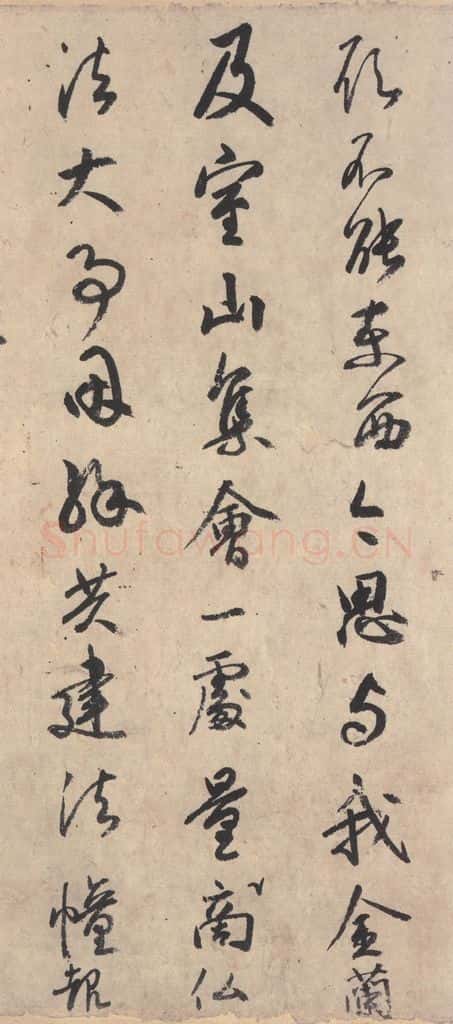 願不能東西今思与我金蘭
及室山集會一處量商仏
法大事因縁共建法幢報
Shufawang.CN